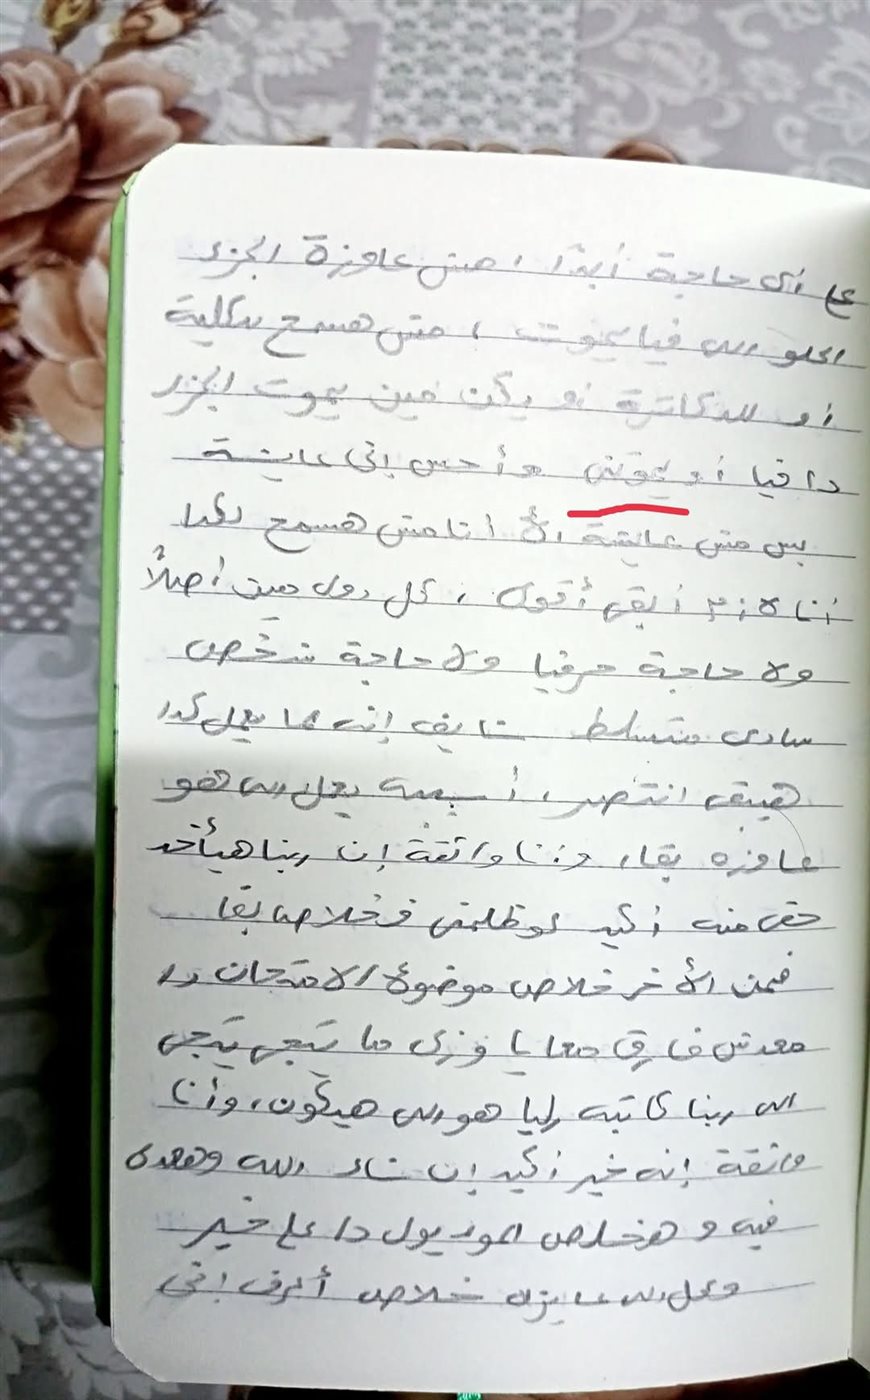 ع أى حاجة أبدًا، مش عاوزة الجزء
الحلو اللى فيا يموت، مش هسمح لكلية
أو للدكاترة أو يكن مين يموت الجزء
دا فيا أو يموتنى وأحس إنى عايشة
بس مش عايشة، لأ أنا مش هسمح بكدا
أنا لازم أبقى أقوى، كل دول مش أصلًا
ولا حاجة حرفيا ولا حاجة شخص
سادى متسلط شايف إنه لما يعمل كدا
هيبقى انتصر، أسيبه يعمل اللى هو
عاوزه بقا، وأنا واثقة إن ربنا هيأخد
حقى منه أكيد لو ظلمنى فخلاص بقا
فمن الأخر خلاص موضوع الامتحان دا
معدش فارق معايا وزى ما تيجى تيجى
اللى ربنا كاتبه ليا هو اللى هيكون، وأنا
واثقة إنه خير أكيد إن شاء الله وهعدى
فيه وهخلص الموديول دا على خير
وكل اللى عايزاه خلاص أعرف إنى